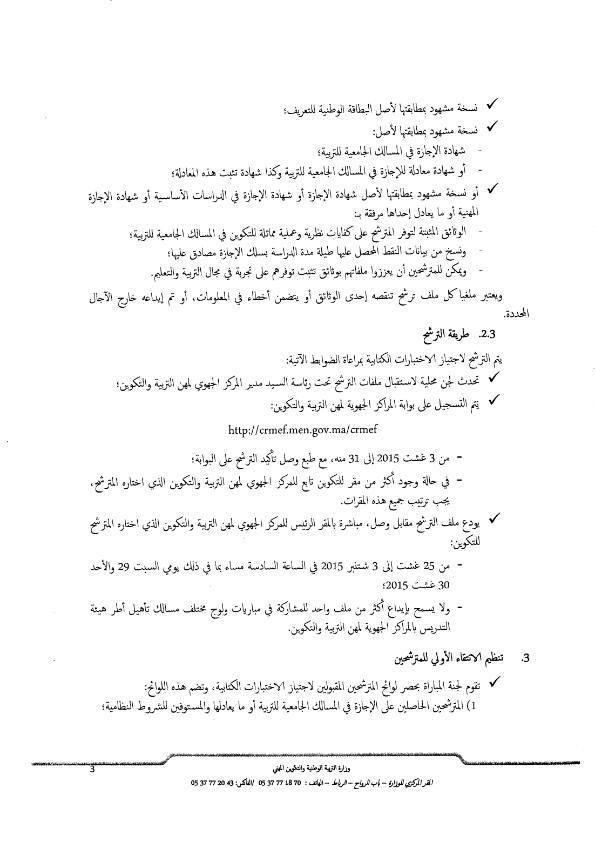 ✓ نسخة مشهود بمطابقتها لأصل البطاقة الوطنية للتعريف؛
✓ نسخة مشهود بمطابقتها لأصل:
- شهادة الإجازة في المسالك الجامعية للتربية؛
- أو شهادة معادلة للإجازة في المسالك الجامعية للتربية وكذا شهادة تثبت هذه المعادلة؛
✓ أو نسخة مشهود بمطابقتها لأصل شهادة الإجازة أو شهادة الإجازة في الدراسات الأساسية أو شهادة الإجازة
المهنية أو ما يعادل إحداها مرفقة بـ:
- الوثائق المثبتة لتوفر المترشح على كفايات نظرية وعملية مماثلة للتكوين في المسالك الجامعية للتربية؛
- ونسخ من بيانات النقط المحصل عليها طيلة مدة الدراسة بسلك الإجازة مصادق عليها؛
- ويمكن للمترشحين أن يعززوا ملفاتهم بوثائق تثبت توفرهم على تجربة في مجال التربية والتعليم.
ويعتبر ملغيا كل ملف ترشح تنقصه إحدى الوثائق أو يتضمن أخطاء في المعلومات، أو تم إيداعه خارج الآجال
المحددة.
2.3. طريقة الترشح
يتم الترشح لاجتياز الاختبارات الكتابية بمراعاة الضوابط الآتية:
✓ تحدث لجن محلية لاستقبال ملفات الترشح تحت رئاسة السيد مدير المركز الجهوي لمهن التربية والتكوين؛
✓ يتم التسجيل على بوابة المراكز الجهوية لمهن التربية والتكوين:
http://crmef.men.gov.ma/crmef
- من 3 غشت 2015 إلى 31 منه، مع طبع وصل تأكيد الترشح على البوابة؛
- في حالة وجود أكثر من مقر للتكوين تابع للمركز الجهوي لمهن التربية والتكوين الذي اختاره المترشح،
يجب ترتيب جميع هذه المقرات.
✓ يودع ملف الترشح مقابل وصل، مباشرة بالمقر الرئيس للمركز الجهوي لمهن التربية والتكوين الذي اختاره المترشح
للتكوين:
- من 25 غشت إلى 3 شتنبر 2015 في الساعة السادسة مساء بما في ذلك يومي السبت 29 والأحد
30 غشت 2015؛
- ولا يسمح بإيداع أكثر من ملف واحد للمشاركة في مباريات ولوج مختلف مسالك تأهيل أطر هيئة
التدريس بالمراكز الجهوية لمهن التربية والتكوين.
3. تنظيم الانتقاء الأولي للمترشحين
✓ تقوم لجنة المباراة بحصر لوائح المترشحين المقبولين لاجتياز الاختبارات الكتابية، وتضم هذه اللوائح:
1) المترشحين الحاصلين على الإجازة في المسالك الجامعية للتربية أو ما يعادلها والمستوفين للشروط النظامية؛
3
وزارة التربية الوطنية والتكوين المهني
المقر المركزي للوزارة – باب الرواح – الرباط – الهاتف : 70 18 77 37 05 /الفاكس: 43 20 77 37 05